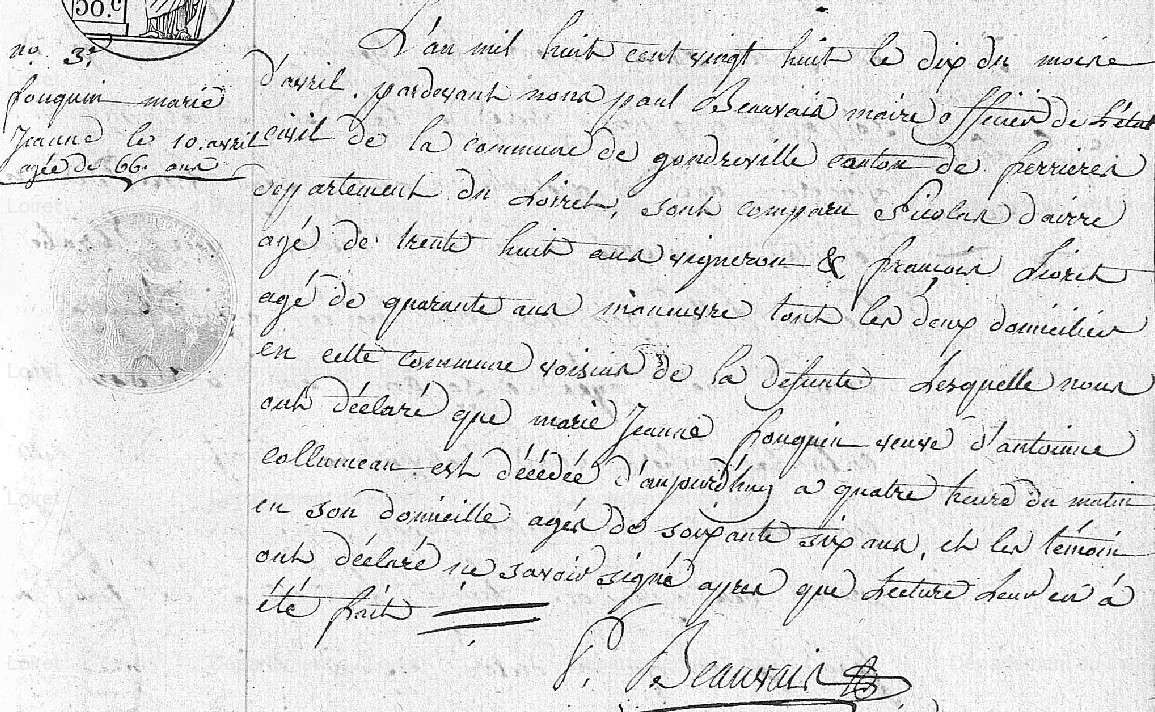 50.c
no. 3.e
fouquin marie
Jeanne le 10. avril
agée de 66. ans
L'an mil huit cent vingt huit le dix du moise
d'avril. pardevant nous paul Beauvais maire officier de L'état
civil de la commune de gondreville canton de ferrieres
departement du Loiret, sont comparu Nicolas d'airre
agé de trente huit ans vigneron & françois Lioret
agé de quarante ans manuvre tout les deux domiciliés
en cette commune voisins de la defunte Lesquelle nous
ont déclaré que marie Jeanne fouquin veuve d'antoinne
collumeau est décédée d'aujourd'huy a quatre heure du matin
en son domicille agés de soixante six ans, et les témoin
ont déclaré ne savoir signé apres que Lecture Leur en á
été fait
P. Beauvais